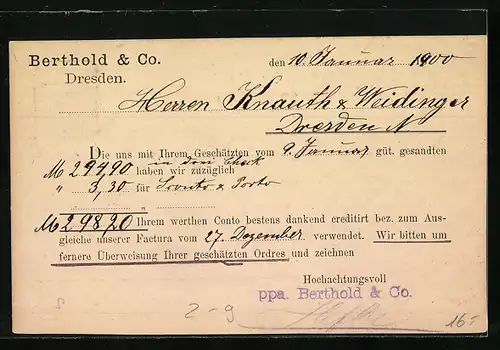 Berthold & Co.
Dresden.
den 10 Januar 1900
Herren Knauth & Weidinger
Dresden N
Die uns mit Ihrem Geschätzten vom 9. Januar güt. gesandten
M 294,90 in drei Check haben wir zuzüglich
" 3,30 für Sconto & Porto
"
M 298,20 Ihrem werthen Conto bestens dankend creditirt bez. zum Aus-
gleiche unserer Factura vom 27. Dezember verwendet. Wir bitten um
fernere Überweisung Ihrer geschätzten Ordres und zeichnen
Hochachtungsvoll
ppa. Berthold & Co.
2-9
16.-